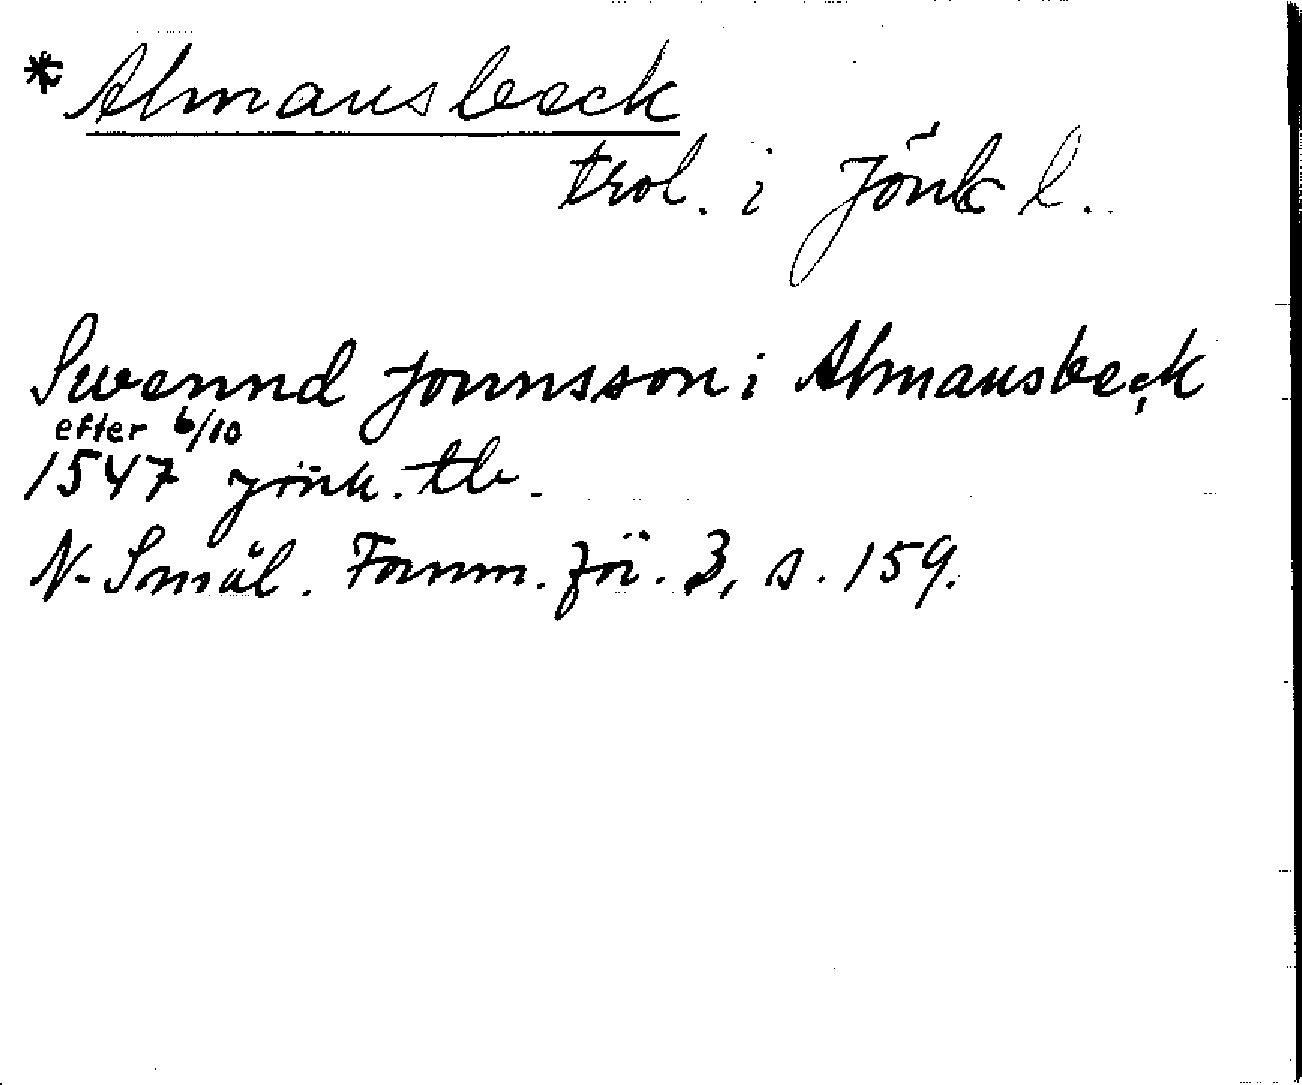 * Almansbeck
trol. i Jönk l.
Swennd Jonnsson i Almansbeck
efter 6/10
1547 Jönk. tb.
N. Smål. Fornm. för. 3, s. 159.